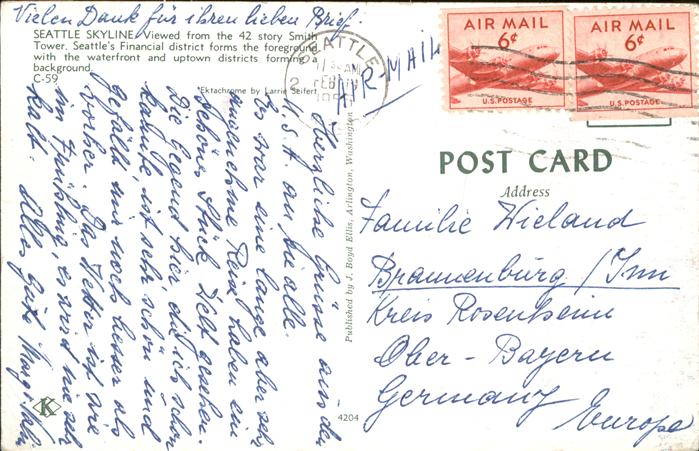 Vielen Dank für ihren lieben Brief.
SEATTLE SKYLINE Viewed from the 42 story Smith
Tower. Seattle's Financial district forms the foreground
with the waterfront and uptown districts forming a
background.
C-59
Ektachrome by Larrie Seifert
Herzliche Grüsse aus den
U.S.A. an Sie alle.
Es war eine lange aber sehr
angenehme Reise haben ein
schönes Stück Welt gesehen.
Die Gegend hier die ich schon
kannte ist sehr schön und
gefällt mir noch besser als
vorher. Das Wetter ist wie
im Frühling, es wird nie sehr
kalt. Alles Gute
K
4204
Published by J. Boyd Ellis, Arlington, Washington
SEATTLE
AM
FEB
AIR-MAIL
AIR MAIL
6¢
U.S. POSTAGE
AIR MAIL
6¢
U.S. POSTAGE
POST CARD
Address
Familie Wieland
Brannenburg / Inn
Kreis Rosenheim
Ober-Bayern
Germany
Europe